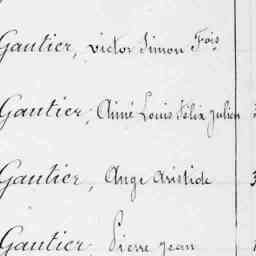 Gautier, victor Simon Fois
Gautier, Aimé Louis Félix Julien
Gautier, Ange Aristide
Gautier, Pierre Jean